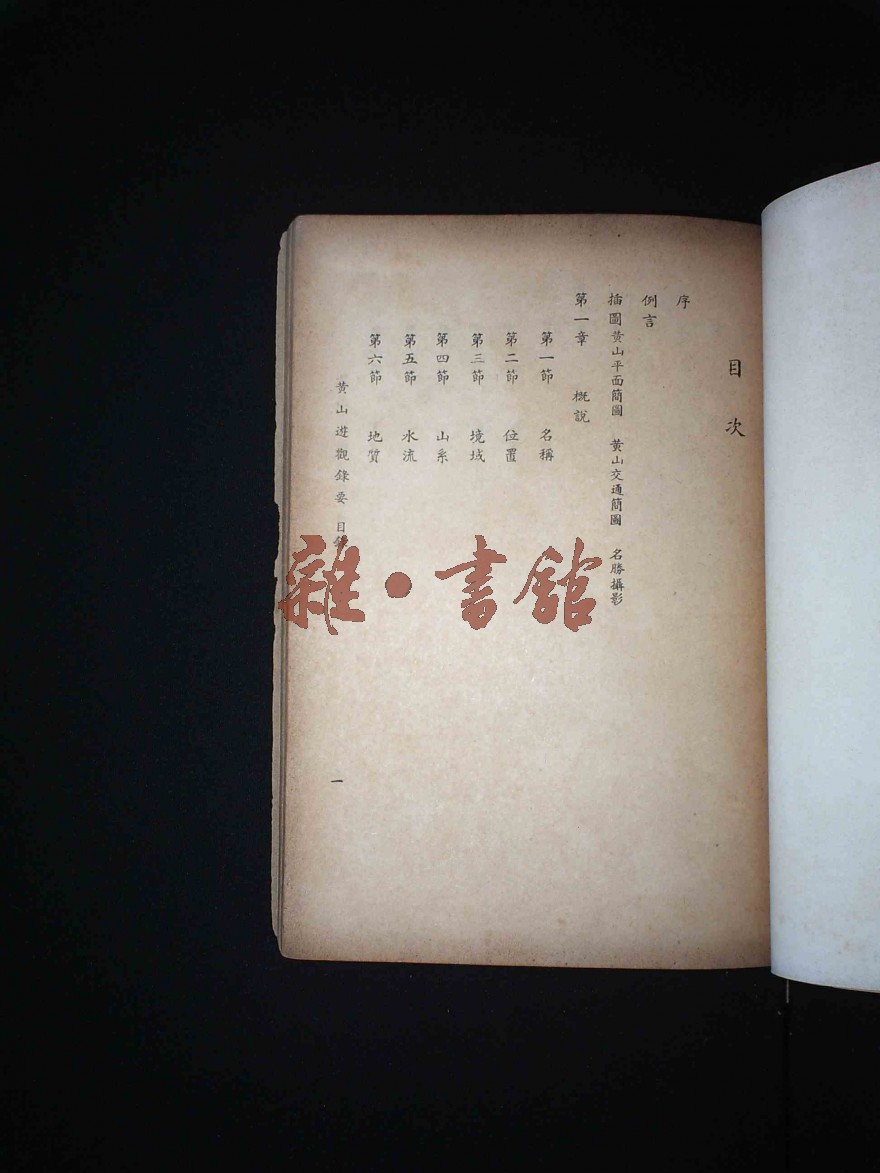 目次
序
例言
插圖黃山平面簡圖 黃山交通簡圖 名勝攝影
第一章 概說
第一節 名稱
第二節 位置
第三節 境域
第四節 山系
第五節 水流
第六節 地質
黃山遊觀錄要 目錄
一
雜·書館